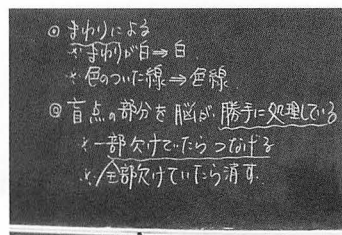 ◎ まわりによる
* まわりが白⇒白
* 色のついた線⇒色線
◎ 盲点の部分を脳が、勝手に処理している
* 一部欠けていたらつなげる
* 全部欠けていたら消す.